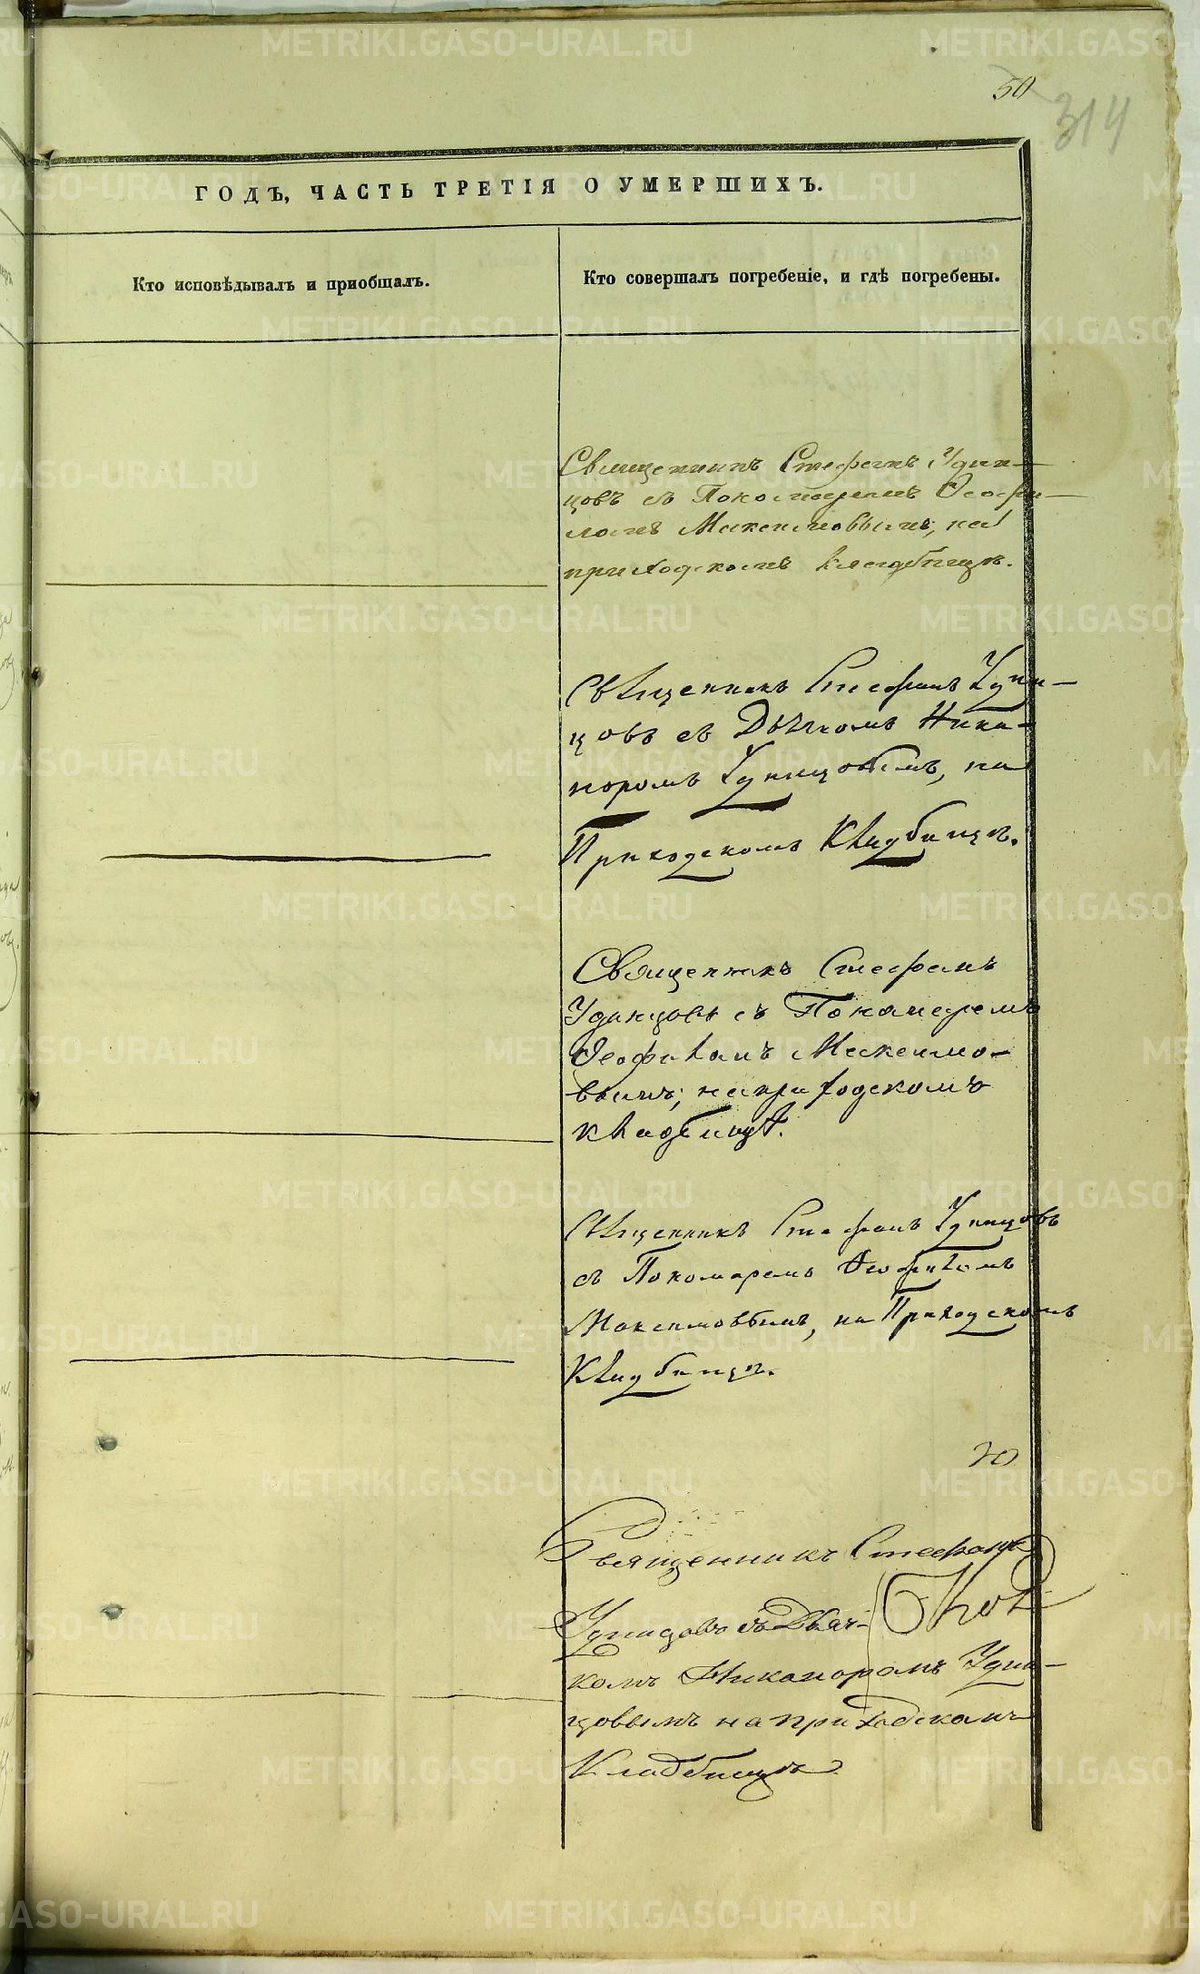 50
314
ГОДЪ, ЧАСТЬ ТРЕТІЯ О УМЕРШИХЪ.
Кто исповѣдывалъ и приобщалъ.
Кто совершалъ погребеніе, и гдѣ погребены.
Священникъ Стефанъ Удин-
цовъ съ Пономаремъ Ѳеофи-
ломъ Максимовымъ, на
приходскомъ кладбищѣ.
Священникъ Стефанъ Удин-
цовъ съ Дьячкомъ Ника-
норомъ Удинцовымъ, на
Приходскомъ Кладбищѣ.
Священникъ Стефанъ
Удинцовъ съ Пономаремъ
Ѳеофиломъ Максимо-
вымъ, на приходскомъ
кладбищѣ.
Священникъ Стефанъ Удинцовъ
съ Пономаремъ Ѳеофиломъ
Максимовымъ, на Приходскомъ
Кладбищѣ.
Священникъ Стефанъ
Удинцовъ съ Дьяч-
комъ Никаноромъ Удин-
цовымъ на приходскомъ
Кладбищѣ
METRIKI.GASO-URAL.RU